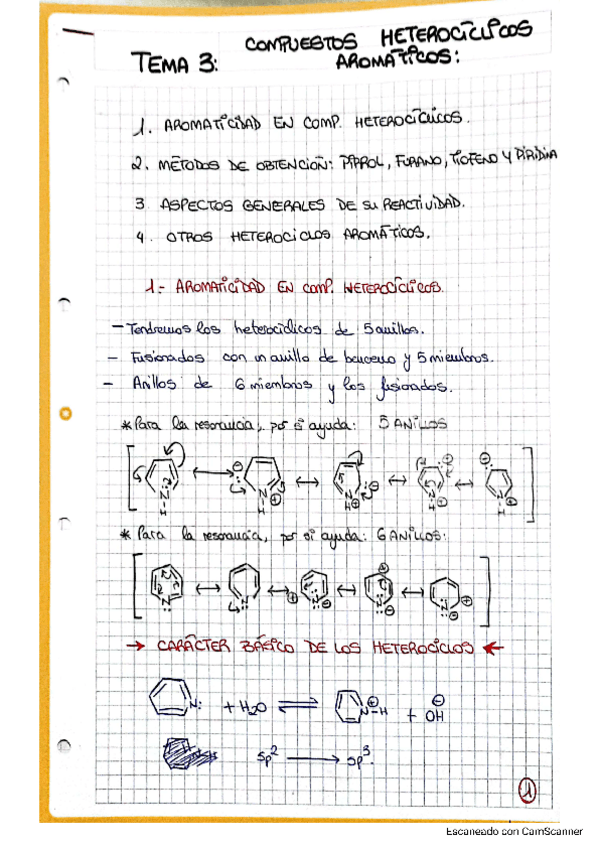 TEMA 3: COMPUESTOS HETEROCÍCLICOS
AROMÁTICOS:
1. AROMATICIDAD EN COMP. HETEROCÍCLICOS.
2. MÉTODOS DE OBTENCIÓN: PIRROL, FURANO, TIOFENO Y PIRIDINA
3 ASPECTOS GENERALES DE SU REACTIVIDAD.
4. OTROS HETEROCICLOS AROMÁTICOS.
1.- AROMATICIDAD EN COMP. HETEROCÍCLICOS.
- Tendremos los heterocíclicos de 5 anillos.
- Fusionados con un anillo de benceno y 5 miembros.
- Anillos de 6 miembros y los fusionados.
* Para la resonancia, por si ayuda: 5 ANILLOS
N-H N-H N-H N-H N-H
* Para la resonancia, por si ayuda: 6 ANILLOS:
N: N: N: N: N:
→ CARÁCTER BÁSICO DE LOS HETEROCICLOS ←
N: + H2O ⇌ N-H + OH
sp2 → sp3.
1
Escaneado con CamScanner